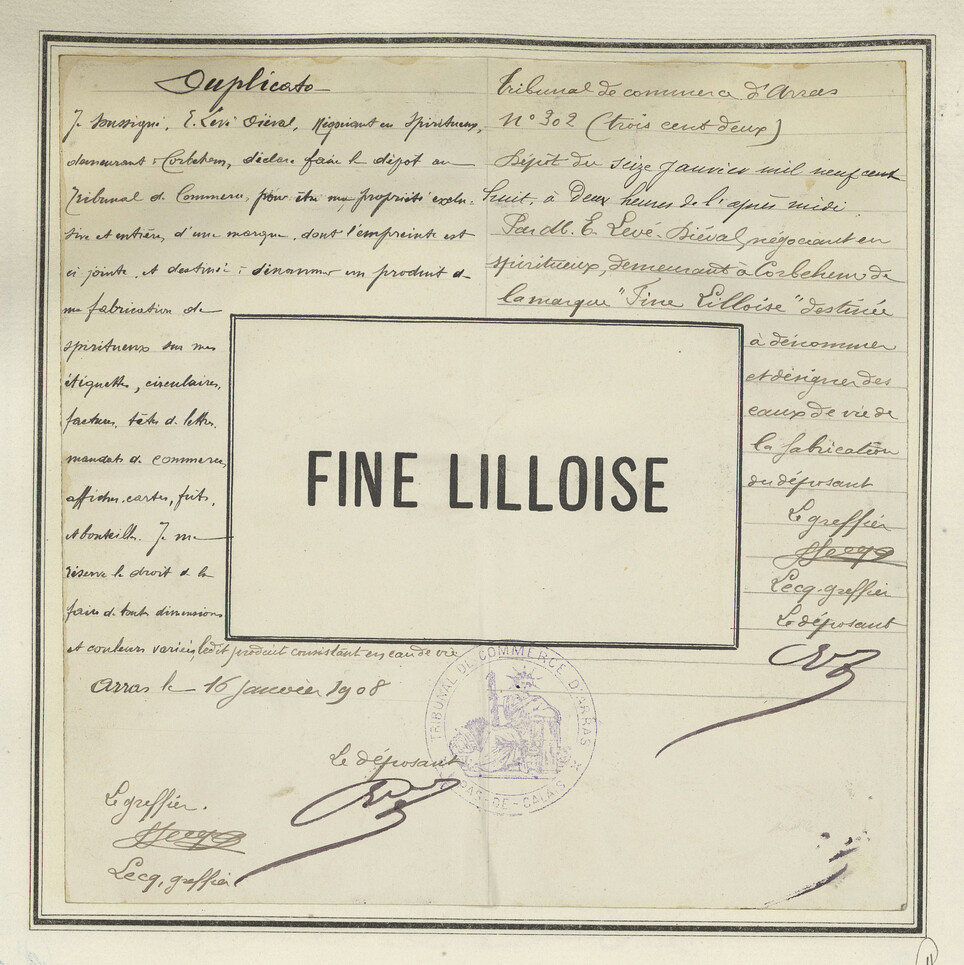 Duplicata
Je soussigné, E. Levé Diéval, Négociant en Spiritueux,
demeurant à Corbehem, déclare faire le dépôt au
Tribunal de Commerce, pour être ma propriété exclu-
sive et entière, d'une marque dont l'empreinte est
ci jointe et destinée à dénommer un produit de
ma fabrication de
spiritueux sur mes
étiquettes, circulaires,
factures, têtes de lettres
mandats de commerce,
affiches, cartes, fûts,
et bouteilles. Je me
réserve le droit de la
faire de toutes dimensions
et couleurs variées, ledit produit consistant en eau de vie
Arras le 16 Janvier 1908
Le déposant
Le greffier.
Lecq, greffier
Tribunal de commerce d'Arras
N° 302 (trois cent deux)
Dépôt du seize Janvier mil neuf cent
huit, à Deux heures de l'après midi.
Par M. E. Levé-Diéval, négociant en
spiritueux, demeurant à Corbehem de
la marque "Fine Lilloise" destinée
à dénommer
et désigner des
eaux de vie de
la fabrication
du déposant
Le greffier
Lecq, greffier
Le déposant
FINE LILLOISE
TRIBUNAL DE COMMERCE D'ARRAS
PAS-DE-CALAIS
11